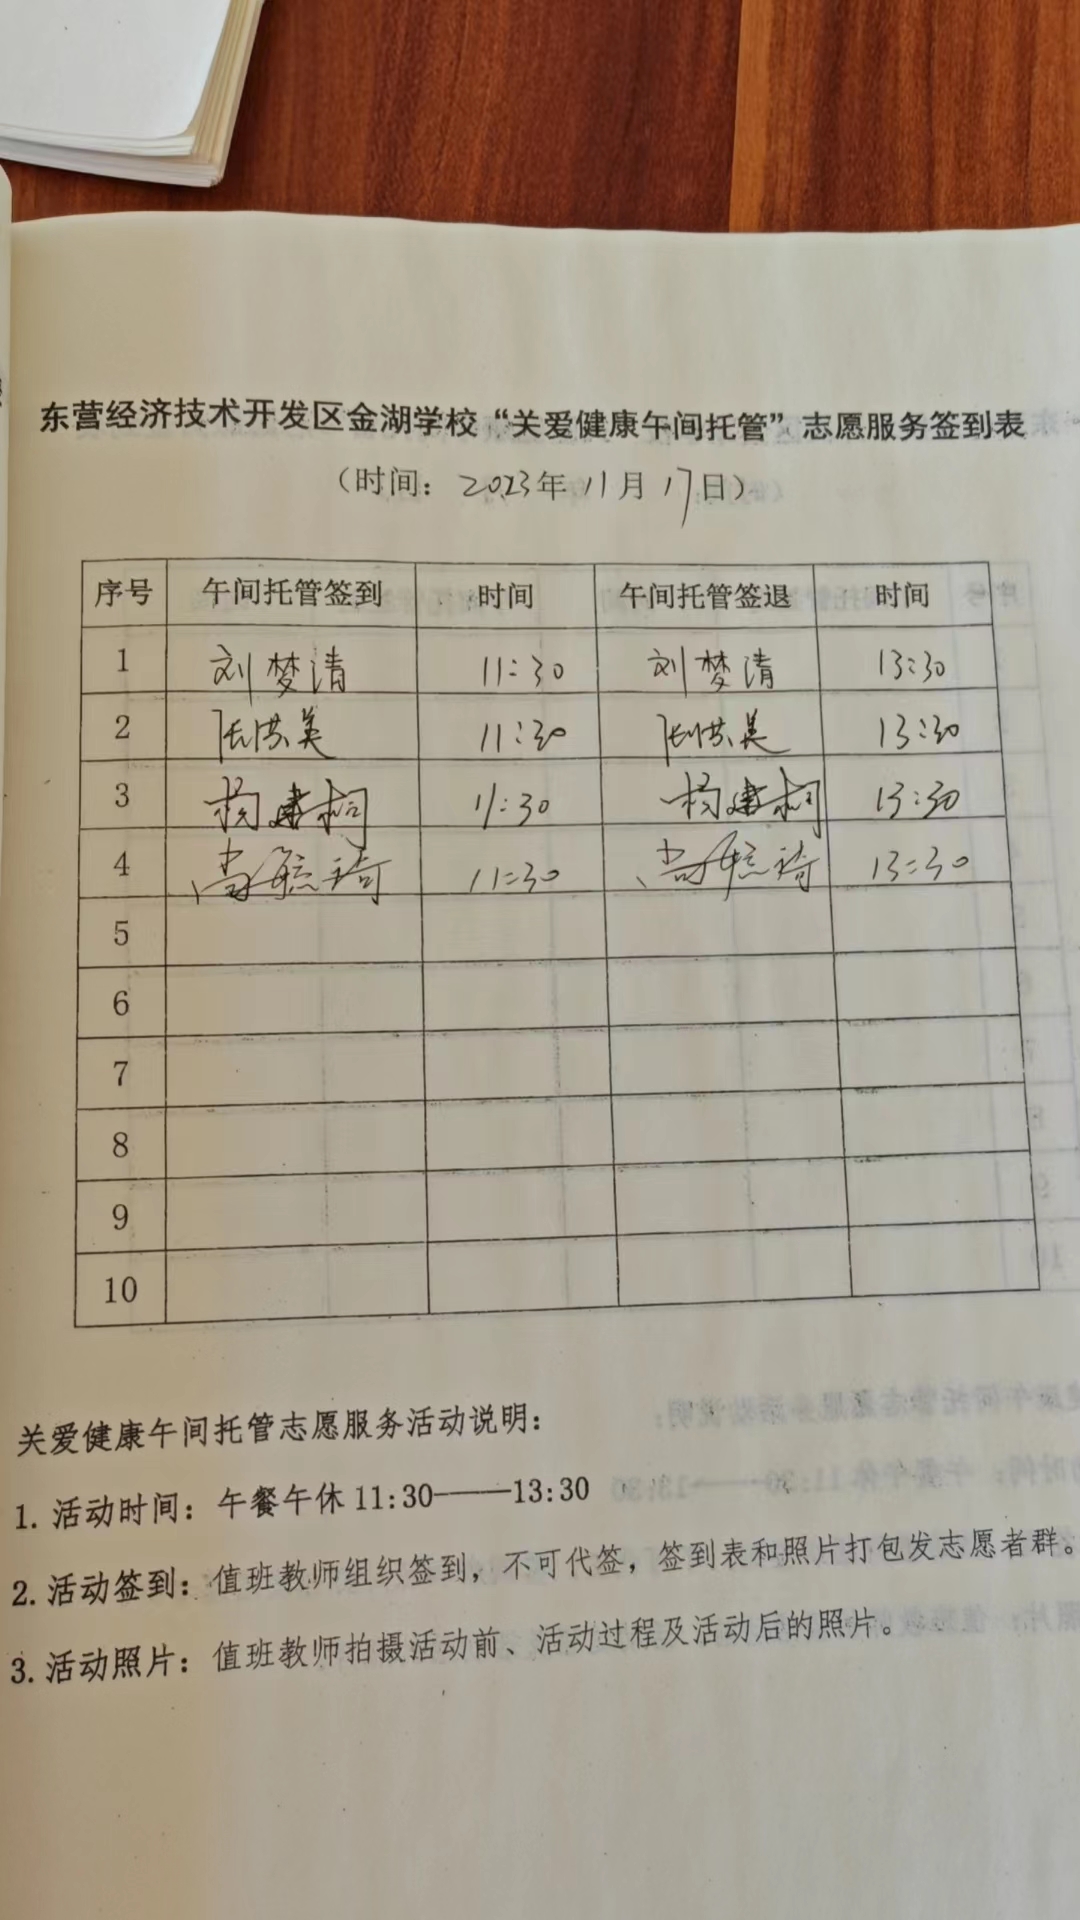 东营经济技术开发区金湖学校“关爱健康午间托管”志愿服务签到表
（时间：2023年11月17日）
序号 午间托管签到 时间 午间托管签退 时间
1 刘梦清 11:30 刘梦清 13:30
2 张洪美 11:30 张洪美 13:30
3 杨建桐 11:30 杨建桐 13:30
4 尚毓琦 11:30 尚毓琦 13:30
5
6
7
8
9
10
关爱健康午间托管志愿服务活动说明：
1. 活动时间：午餐午休11:30——13:30
2. 活动签到：值班教师组织签到，不可代签，签到表和照片打包发志愿者群。
3. 活动照片：值班教师拍摄活动前、活动过程及活动后的照片。